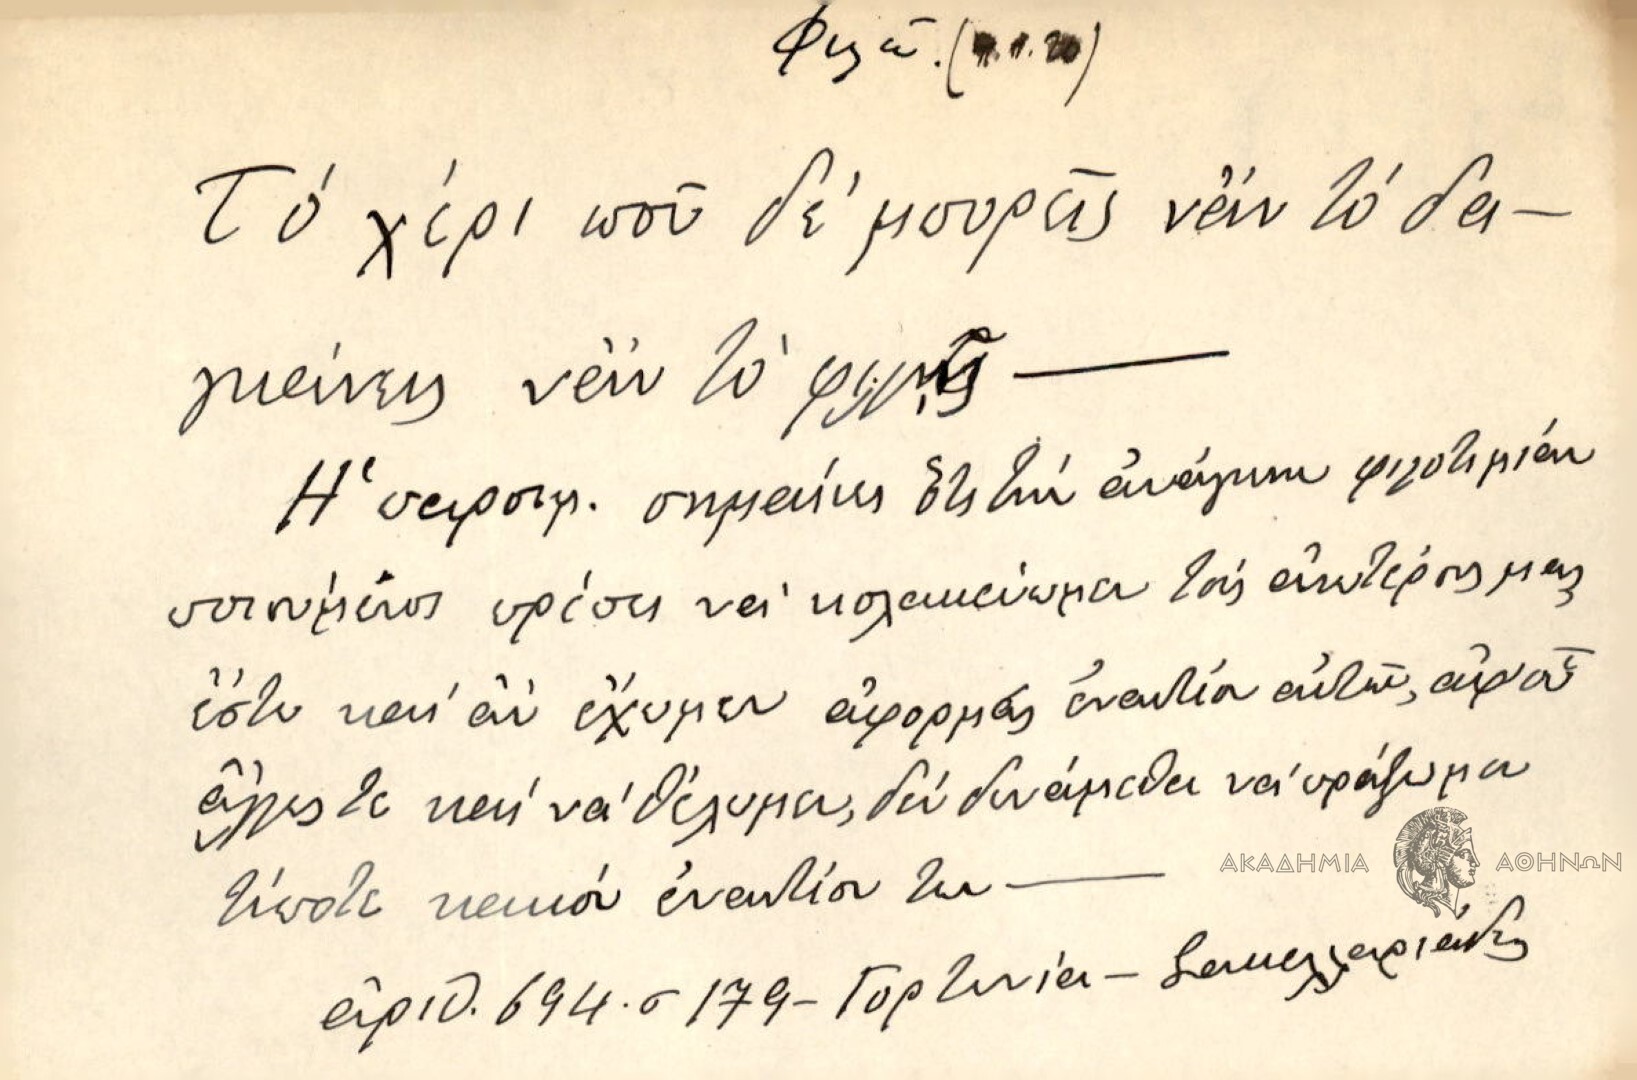 Φιλῶ. (
Τό χέρι ποῦ δέ μπορεῖς νἄν τό δα-
γκάνεις νἄν τό φιλῇς —
Ἡ παροιμ. σημαίνει ὅτι τήν ἀνάγκην φιλοτιμίαν
ποιούμενοι πρέπει νά κολακεύωμεν τούς ἀνωτέρους μας
ἔστω καί ἄν ἔχωμεν ἀφορμάς ἐναντίον αὐτῶν, ἀφ' οὗ
ἄλλως τε καί νά θέλωμεν, δέν δυνάμεθα νά πράξωμεν
τίποτε κακόν ἐναντίον των —
ἀριθ. 694. σ 179 - Γορτυνία - Σακελλαριάδης
ΑΚΑΔΗΜΙΑ ΑΘΗΝΩΝ